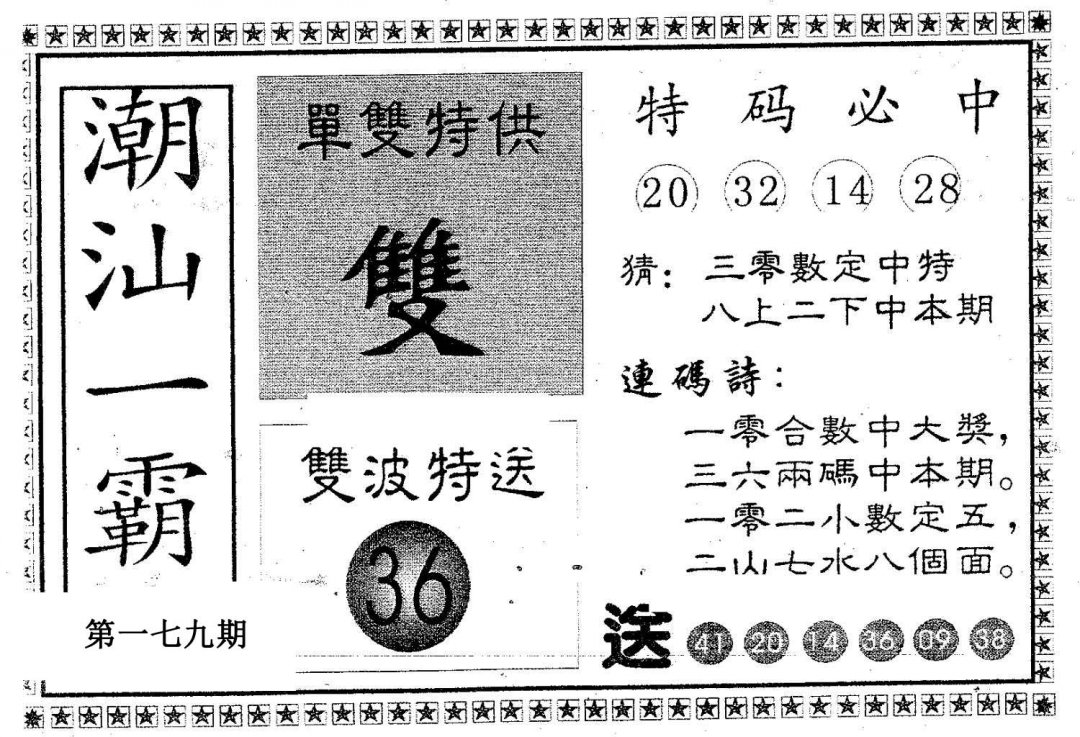 潮汕一霸
第一七九期
單雙特供
雙
雙波特送
36
特码必中
20 32 14 28
猜：三零數定中特
八上二下中本期
連碼詩：
一零合數中大獎，
三六兩碼中本期。
一零二小數定五，
二山七水八個面。
送 41 20 14 36 09 38